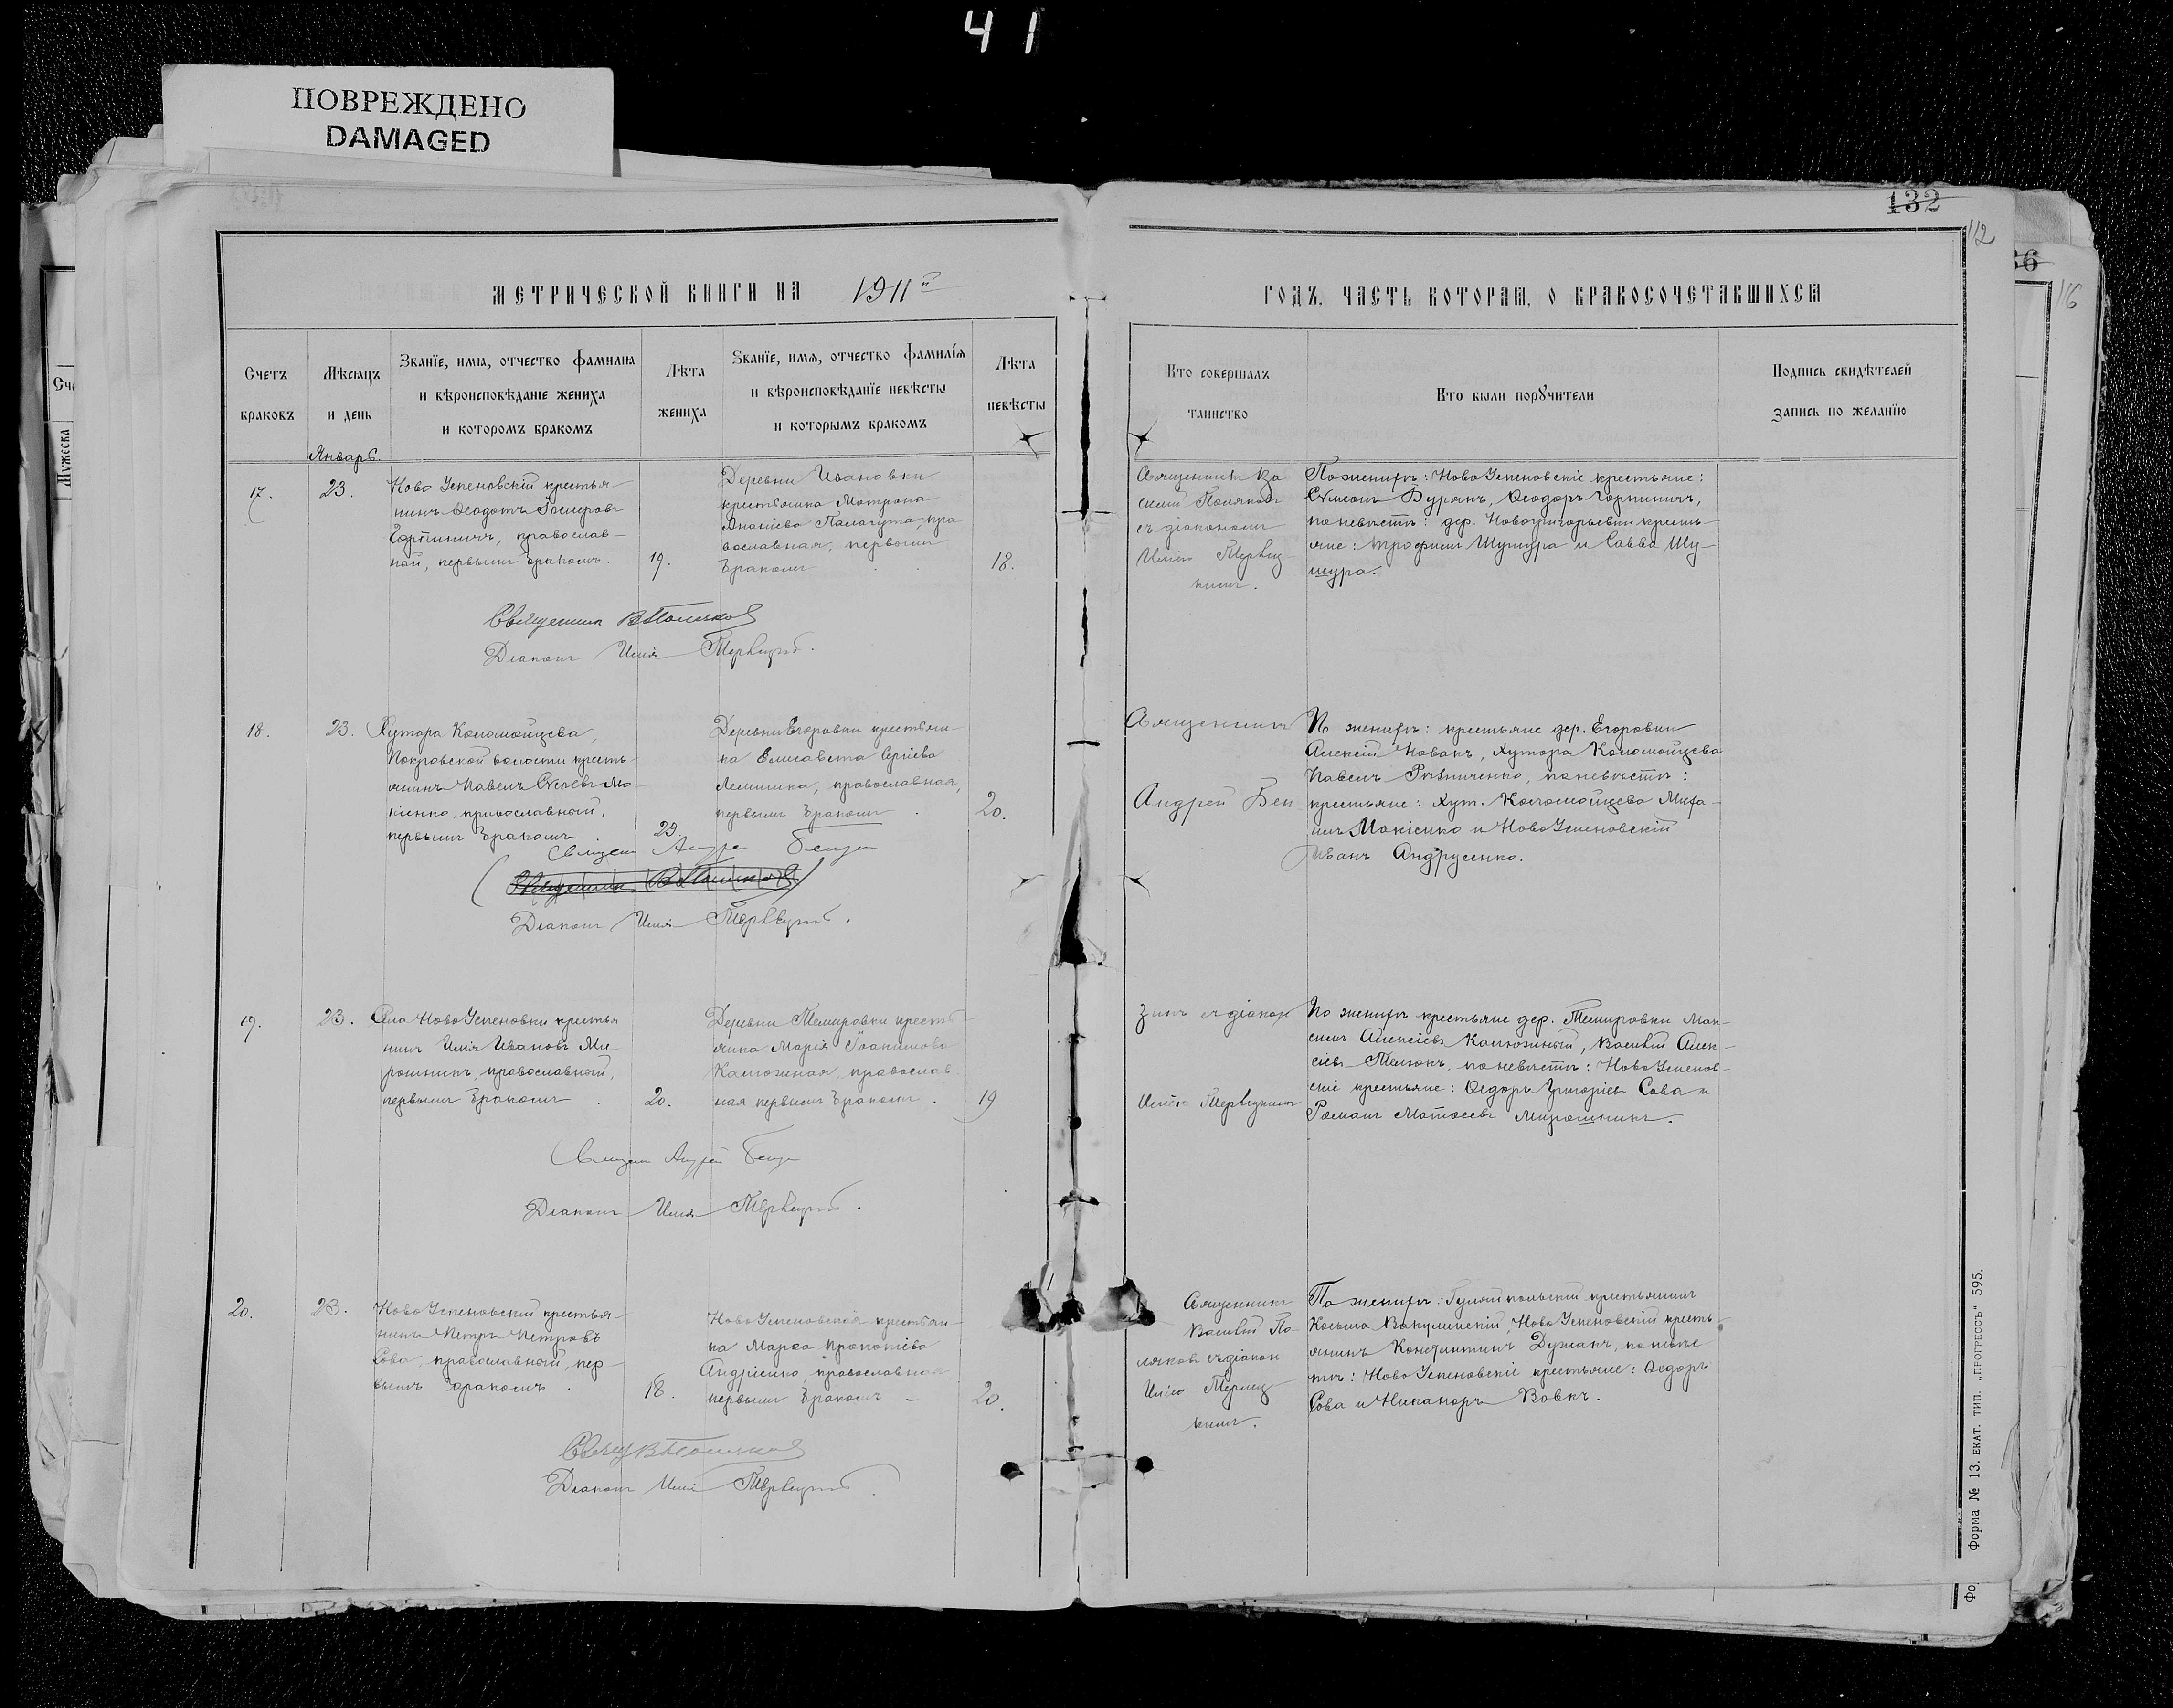 41
ПОВРЕЖДЕНО
DAMAGED
132
112
36
116
МЕТРИЧЕСКОЙ КНИГИ НА 1911й
ГОДЪ, ЧАСТЬ ВТОРАЯ, О БРАКОСОЧЕТАВШИХСЯ
Счетъ
браковъ
Мѣсяцъ
и день
Званїе, имя, отчество фамилиа
и вѣроисповѣданіе жениха
и которомъ бракомъ
Лѣта
жениха
Званїе, имя, отчество фамилїя
и вѣроисповѣданїе невѣсты
и которымъ бракомъ
Лѣта
невѣсты
Кто совершалъ
таинство
Кто были поручители
Подпись свидѣтелей
запись по желанїю
Мужеска
Январь.
17.
23.
Ново Успеновскій крестья-
нинъ Ѳеодотъ
православ-
ный, первымъ бракомъ.
19.
Деревни Ивановки
крестьянка Матрона
Ананіева Палагута, пра
вославная, первымъ
бракомъ
18.
Священникъ Ва
силій Поляковъ
съ діакономъ
Иліею
По женихѣ: Ново Успеновскіе крестьяне:
Сѵмеонъ Бурякъ, Ѳеодоръ Горпиничъ,
по невѣстѣ: дер. Новогригорьевки кресть-
яне: Трофимъ Шушура и Савва Шу-
шура.
Священникъ В Поляковъ
Діаконъ Илія
18.
23.
Хутора Коломойцева,
Покровской волости кресть-
янинъ Павелъ
православный,
первымъ бракомъ
23.
Деревни Егоровки крестьян-
ка Елисавета Сергіева
православная,
первымъ бракомъ
20.
Священникъ
Андрей Бен
По женихѣ: крестьяне дер. Егоровки
Алексій Новакъ, хутора Коломойцева
Павелъ Рѣзниченко, по невѣстѣ:
крестьяне: хут. Коломойцева Миха-
илъ Мокіенко и Ново Успеновскій
Иванъ Андрусенко.
Діаконъ Илія
19.
23.
Села Ново Успеновки крестья
нинъ Илія Ивановъ Ми-
рошникъ, православный,
первымъ бракомъ
20.
Деревни Темировки кресть-
янка Марія Іоакимова
Калюжная, православ
ная первымъ бракомъ.
19
зинъ съ діакон
Иліею
По женихѣ крестьяне дер. Темировки Мак-
симъ Алексіевъ Калюжный, Василій Алек-
сіевъ по невѣстѣ: Ново Успенов-
скіе крестьяне: Ѳедоръ Григоріевъ Сова и
Романъ Матѳеевъ Мирошникъ.
Діаконъ Илія
20.
23.
Ново Успеновскій крестья-
нинъ Петръ Петровъ
Сова, православный, пер-
вымъ бракомъ
18.
Ново Успеновская крестьян-
ка Марѳа Прокопіева
Андріенко, православная
первымъ бракомъ
20.
Священникъ
Василій По-
ляковъ съ діакон
Иліею
По женихѣ: Гуляйпольскій крестьянинъ
Косьма Вакулинскій, Ново Успеновскій кресть-
янинъ Константинъ по невѣс
тѣ: Ново Успеновскіе крестьяне: Ѳедоръ
Сова и Никаноръ Вовкъ.
Свящ В Поляковъ
Діаконъ Илія
Форма № 13. ЕКАТ. ТИП. „ПРОГРЕССЪ" 595.